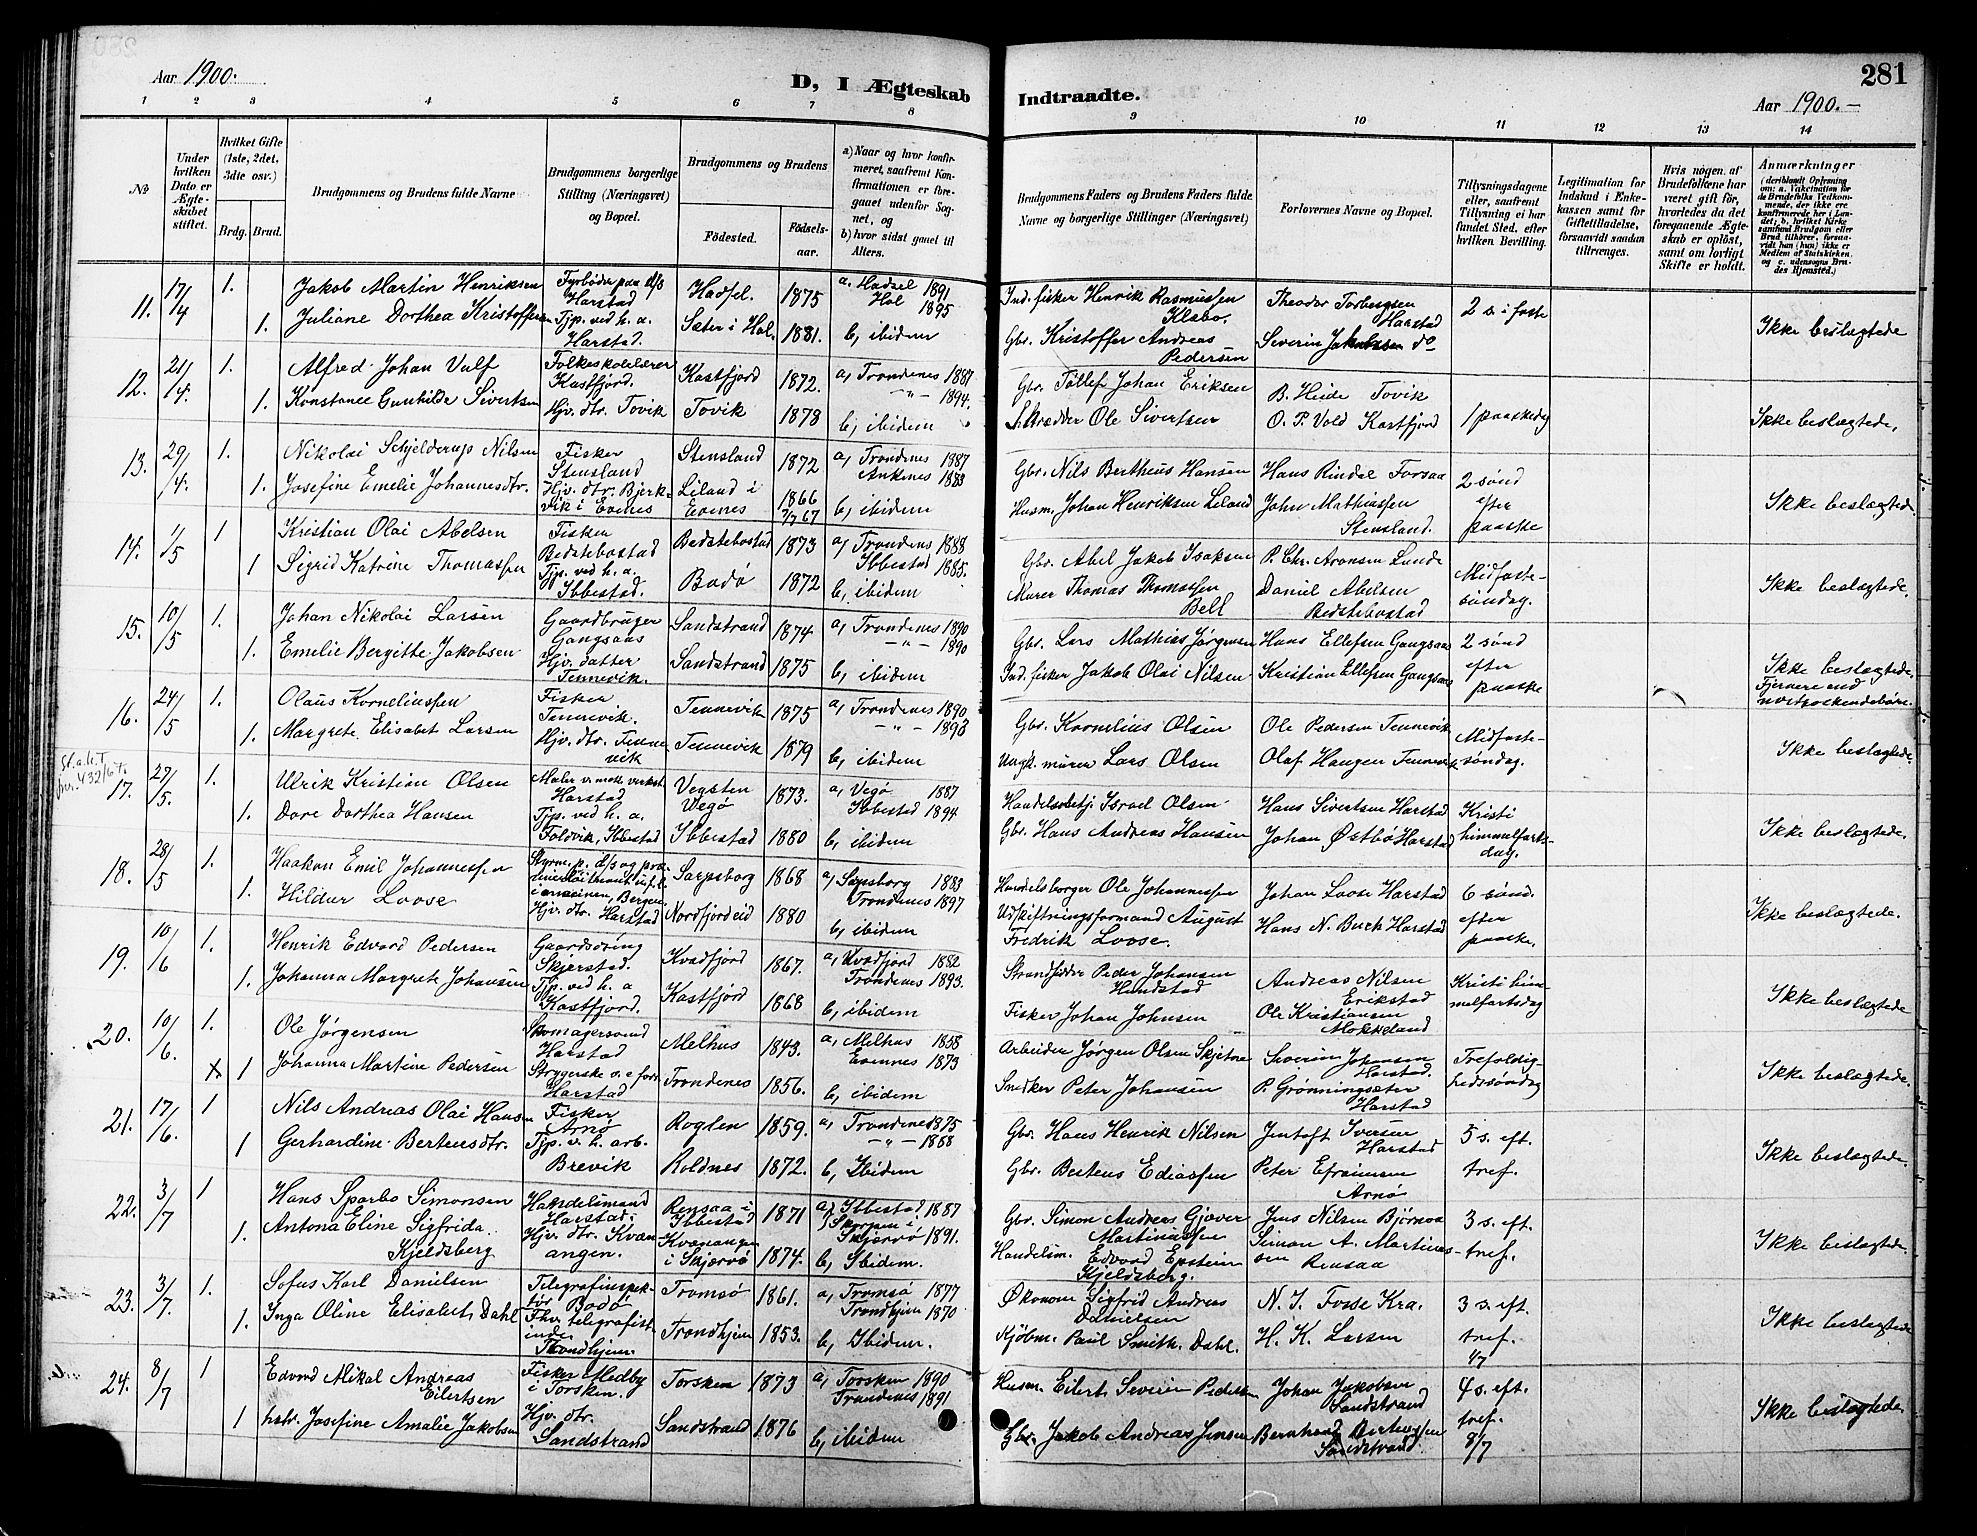 Aar 1900.
D, I Ægteskab
Indtraadte.
281
Aar 1900.-
1 2 3 4 5 6 7 8
9 10 11 12 13 14
No
Under hvilken Dato er Ægteskabet stiftet.
Hvilket Gifte (1ste, 2det, 3die osv.)
Brdg. Brud.
Brudgommens og Brudens fulde Navne
Brudgommens borgerlige Stilling (Næringsvei) og Bopæl.
Brudgommens og Brudens
Fødested.
Fødselsaar.
a) Naar og hvor konfirmeret, saafremt Konfirmationen er foregaaet udenfor Sognet, og
b) hvor sidst gaaet til Alters.
Brudgommens Faders og Brudens Faders fulde Navne og borgerlige Stillinger (Næringsvei)
Forlovernes Navne og Bopæl.
Tillysningsdagene eller, saafremt Tillysning ei har fundet Sted, efter hvilken Bevilling.
Legitimation for Indskud i Enkekassen samt for Giftetilladelse, forsaavidt saadan tiltrænges.
Hvis nogen af Brudefolkene har været gift før, hvorledes da det foregaaende Ægteskab er opløst, samt om lovligt Skifte er holdt.
Anmærkninger
11. 17/4 1. Jakob Martin Henriksen Fyrbøder paa d/s Harstad Hadsel. 1875 a. Hadsel 1891 Ind. fisker Henrik Rasmussen Klsbo. Theodor Torbergsen Harstad 2 s. i faste
1. Juliane Dorthea Kristoffersen Tjp. ved h. a. Harstad. Sæter i Hol. 1881. Hol 1895 b, ibidem Gbr. Kristoffer Andreas Pedersen Severin Jakobssen do Ikke beslægtede
12. 21/4. 1. Alfred Johan Vulf Folkeskolelærer Kastfjord. Kastfjord 1872. a, Trondenes 1887 Gbr. Tøllef Johan Eriksen B. Heide Tovik
1. Konstance Gunhilde Sivertsen Hjv. dtr. Tovik Tovik 1878 -"- 1894. b, ibidem Skrædder Ole Sivertsen O. P. Vold Kastfjord 1 paaskedag Ikke beslægtede,
13. 29/4. 1. Nikolai Schjelderup Nilsen Fisker Stensland Stensland 1872 a, Trondenes 1887 Gbr. Nils Berthius Hansen Hans Rindal Forsaa 2 sønd
1. Josefine Emelie Johannesdtr. Hjv. dtr. Bjerkvik i Evenes Liland i Evenes 1866 7/7 67 Ankenes 1883 b, ibidem Husm. Johan Henriksen Liland John Mathiassen Stensland. efter paaske Ikke beslægtede
14. 1/5 1 Kristian Olai Abelsen Fisker Bedstebostad Bedstebostad 1873 a, Trondenes 1888 Gbr. Abel Jakob Isaksen P. Chr. Aronsen Lunde
1 Sigrid Katrine Thomassen Tjp. ved h. a. Ibbestad. Bodø 1872 Ibbestad 1885. b, ibidem Murer Thomas Thomassen Bell Daniel Abelsen Bedstebostad Midfastesøndag. Ikke beslægtede,
15. 10/5 1. Johan Nikolai Larsen Gaardbruger Gangsaas Sandstrand 1874 a, Trondenes 1890 Gbr. Lars Mathias Jørgensen Hans Ellefsen Gangsaas 2 sønd
1. Emelie Bergitte Jakobsen Hjv. datter Tennevik. Sandstrand 1875 -"- 1890 b, ibidem Ind. fisker Jakob Olai Nilsen Kristian Ellefsen Gangsaas efter paaske Ikke beslægtede, Fjernere end
16. 24/5 1. Olaus Korneliussen Fisker Tennevik. Tennevik 1875 a, Trondenes 1890 Gbr. Kornelius Olsen Ole Pedersen Tennevik
1. Margrete Elisabet Larsen Hjv. dtr. Tennevik Tennevik 1879 -"- 1893 b, ibidem Ungk. murer Lars Olsen Olaf Haugen Tennevik Midfastesøndag. Ikke beslægtede
17. 27/5. 1. Ulrik Kristian Olsen Maler v. mek. verkst. Harstad Vegsten Vegø 1873. a, Vegø 1887 Handelsbetj. Israel Olsen Hans Sivertsen Harstad Kristi
1. Dore Dorthea Hansen Tjp. ved h. a. Foldvik, Ibbestad Ibbestad 1880 Ibbestad 1894 b, ibidem Gbr. Hans Andreas Hansen Johan Østbø Harstad himmelfartsdag. Ikke beslægtede.
18. 28/5 1. Haakon Emil Johannessen Styrm. p. d/s og Bergen Sarpsborg 1868 a, Sarpsborg 1883 Handelsborger Ole Johannessen Johan Loose Harstad 6 sønd.
1. Hildur Loose Hjv. dtr. Harstad Nordfjordeid 1880 Trondenes 1897 b, ibidem Udskiftningsformand August Fredrik Loose. Hans N. Buch Harstad efter paaske. Ikke beslægtede.
19. 10/6 1. Henrik Edvard Pedersen Gaardsdreng Skjerstad. Kvædfjord 1867. a, Kvædfjord 1882 Strandsidder Peder Johansen Hundstad Andreas Nilsen Erikstad Kristi him-
1. Johanna Margrete Johansen Tjp. ved h. a Kastfjord. Kastfjord 1868 Trondenes 1893. b, ibidem Fisker Johan Johnsen Ole Kristiansen Møkkeland melfartsdag Ikke beslægtede
20. 10/6. 1. Ole Jørgensen Skomagersvend Harstad Melhus 1843. a, Melhus 1858 Arbeider Jørgen Olsen Skjetne Severin Johansen Harstad. Trefoldig-
x 1 Johanna Martine Pedersen Strygerske Harstad Trondenes 1856. Evennes 1873 b, ibidem Snedker Peter Johansen P. Grønningsæter Harstad hedssøndag Ikke beslægtede.
21. 17/6. 1 Nils Andreas Olai Hansen Fisker Arnø Roglen 1859. a, Trondenes 1875 Gbr. Hans Henrik Nilsen Jentoft Iversen Harstad 5 s. eft.
1 Gerhardine Berteusdtr. Tjp. v. h. arb. Brevik Roldnes 1872. -"- 1888 b, Ibidem Gbr. Berteus Ediassen Peter Efraimsen Arnø tref. Ikke beslægtede.
22. 3/7 1 Hans Sparbo Simonsen Handelsmand Harstad. Rensaa i Ibbestad 1871 a, Ibbestad 1887 Gbr. Simon Andreas Gjøver Martinussen Jens Nilsen Bjørnaa 3 s. eft.
1. Antona Eline Sigfrida Kjeldsberg Hjv. dtr. Kvænangen. Kvænangen i Skjærvø 1874. Skjærvø 1891. b, Ibidem. Handelsm. Edvard Epstein Kjeldsberg. Simon A. Martinussen Rensaa tref. Ikke beslægtede.
23. 3/7. 1. Sofus Karl Danielsen Telegrafinspektør Bodø Tromsø 1861. a, Tromsø 1877 Økonom Sigfrid Andreas Danielsen N. J. Fosse Kra. 3 s. eft.
1. Inga Oline Elisabet Dahl Fhv. telegrafistinde Trondhjem. Trondhjem 1853. Trondhjem 1870 b, Ibidem. Kjøbm. Paul Smith Dahl. H. K. Larsen tref. Ikke beslægtede
24. 8/7 1 Edvard Mikal Andreas Eilertsen Fisker Medby i Torsken. Torsken 1873 a, Torsken 1890 Husm. Eilert Severin Pedersen Johan Jakobsen Sandstrand 4 s. eft.
1 Josefine Amalie Jakobsen Hjv. dtr. Sandstrand Sandstrand 1876 Trondenes 1891 b, ibidem Gbr. Jakob Andreas Jensen Bernhard Sandstrand tref. 8/7 Ikke beslægtede.